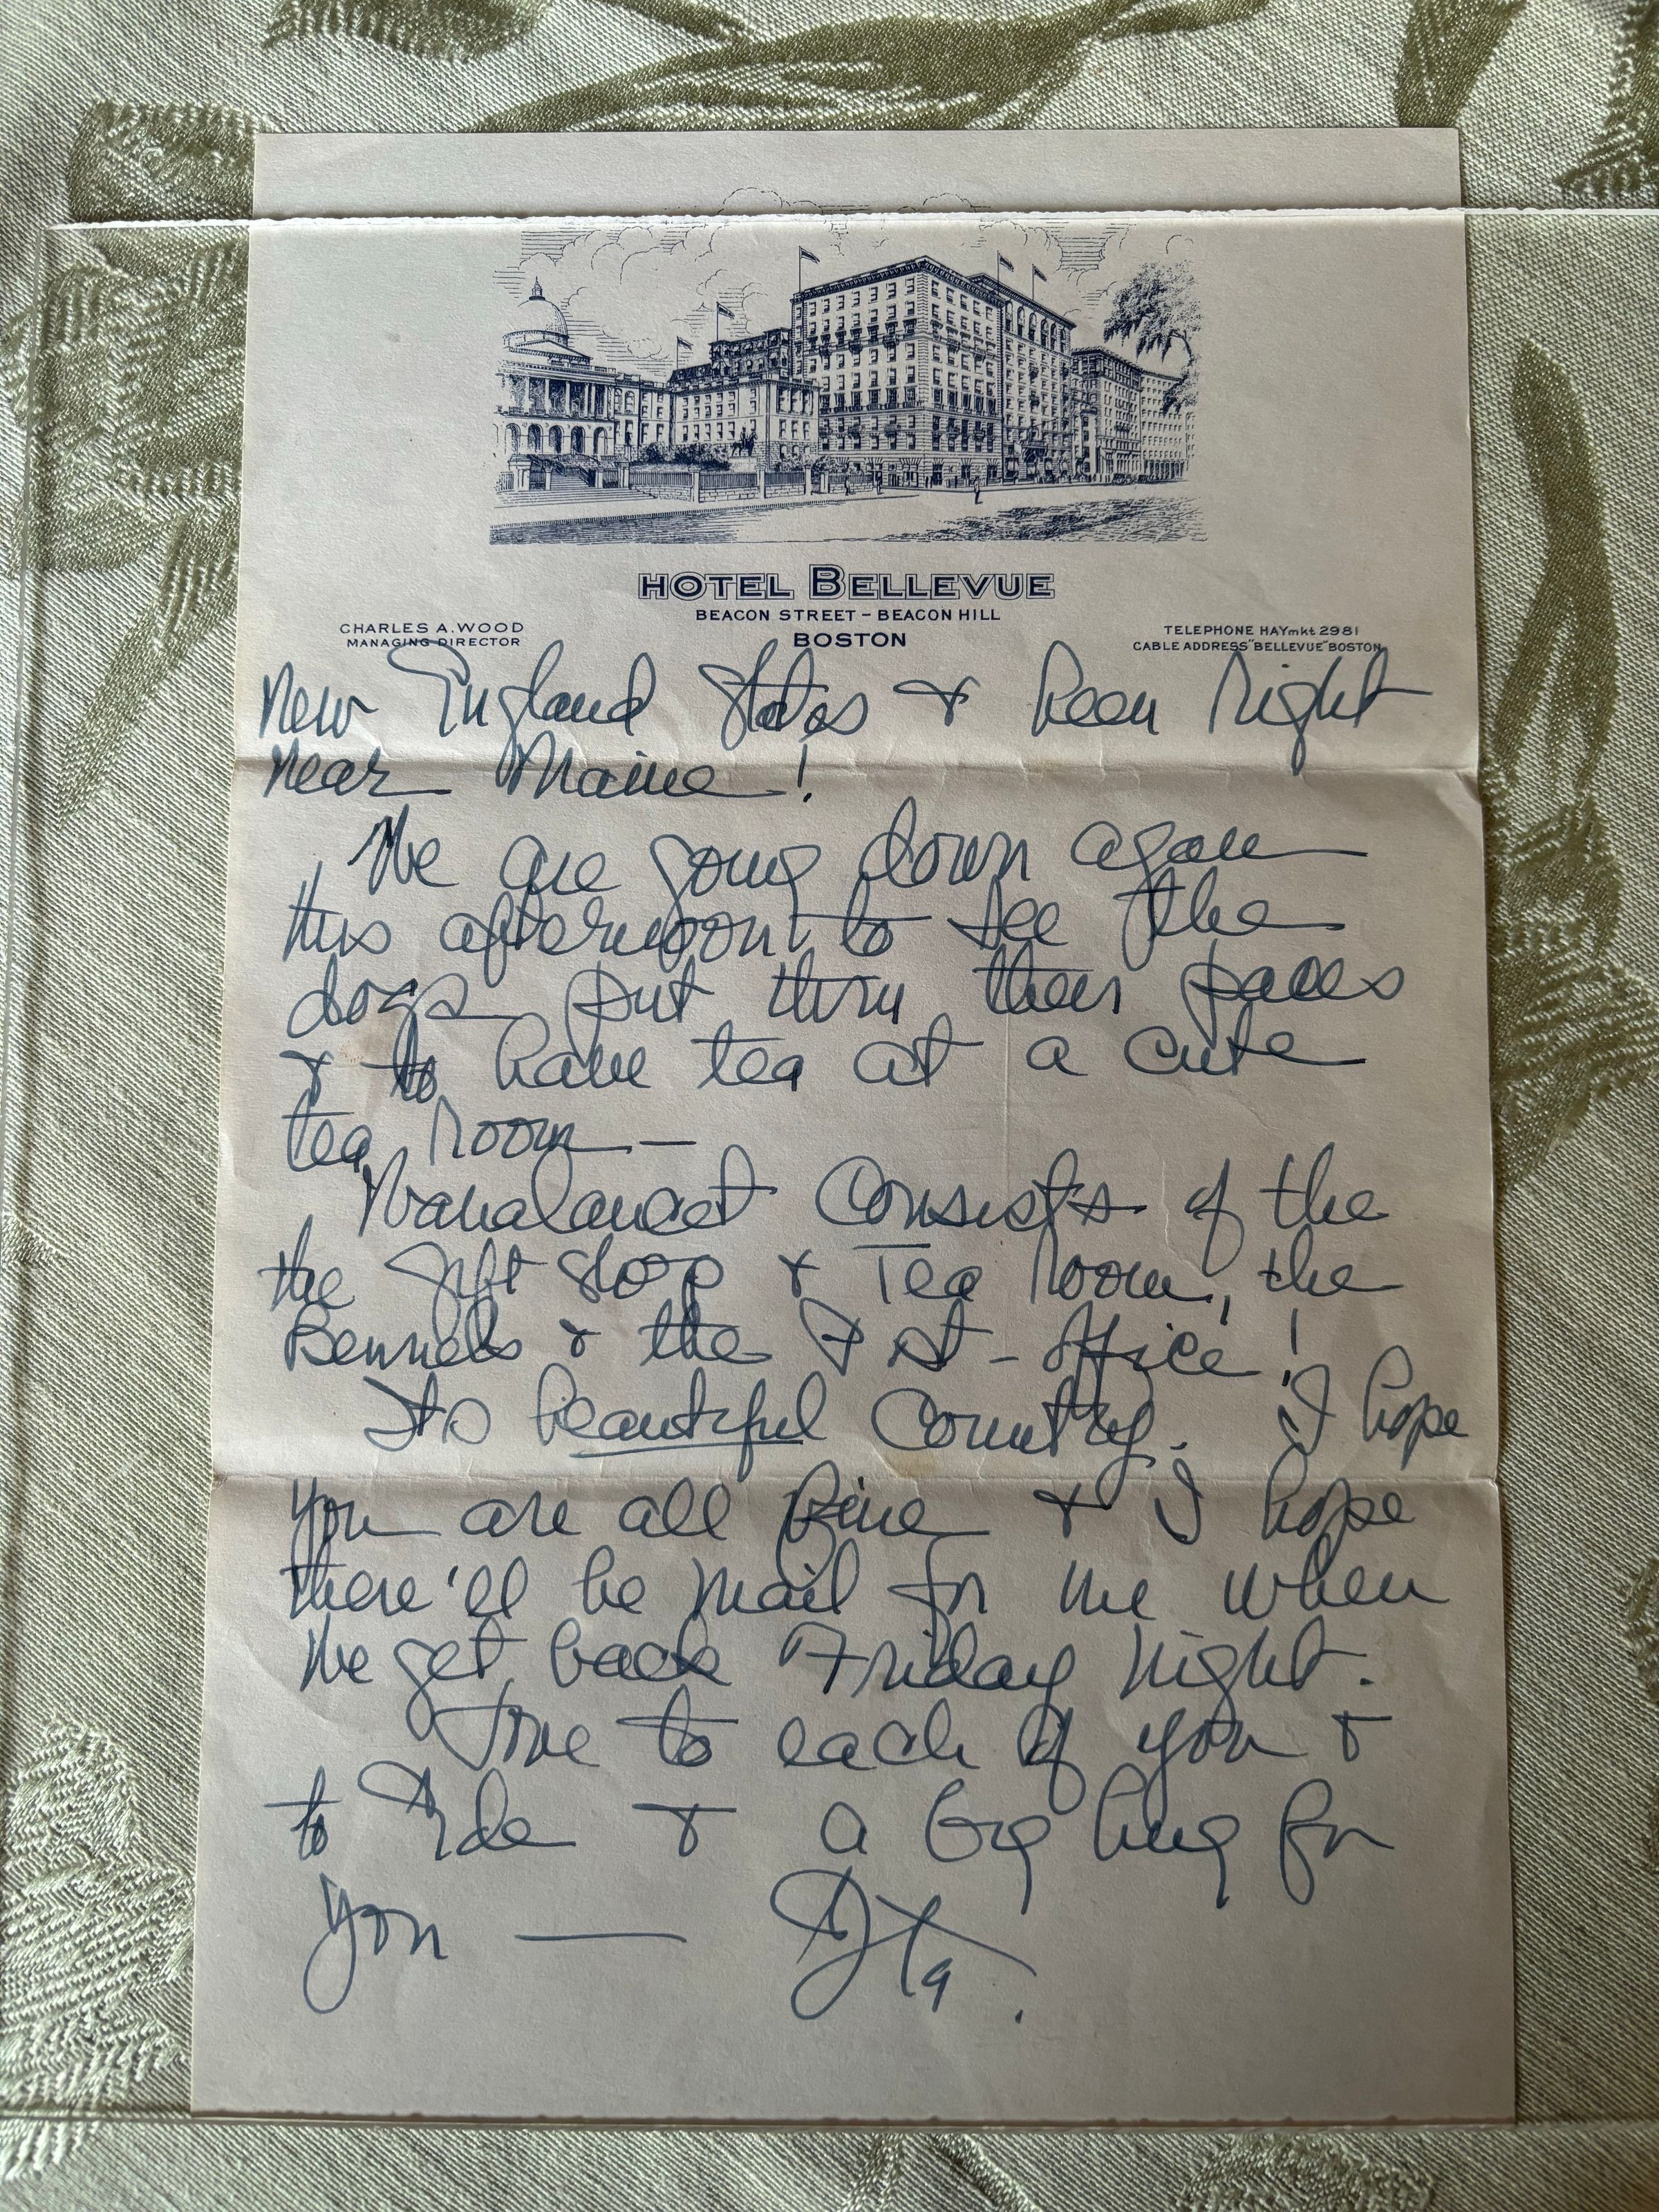 HOTEL BELLEVUE
BEACON STREET – BEACON HILL
BOSTON
CHARLES A. WOOD
MANAGING DIRECTOR
TELEPHONE HAYmkt 2981
CABLE ADDRESS "BELLEVUE" BOSTON
New England States & been right
near Maine!
We are going down again
this afternoon to see the
dogs put thru their paces
& to have tea at a cute
tea room —
consists of the
the Gift Shop & Tea Room, the
& the Post-Office!
Its beautiful Country. I hope
you are all fine & I hope
there'll be mail for me when
We get back Friday night.
Love to each of you &
to & a big hug for
you —